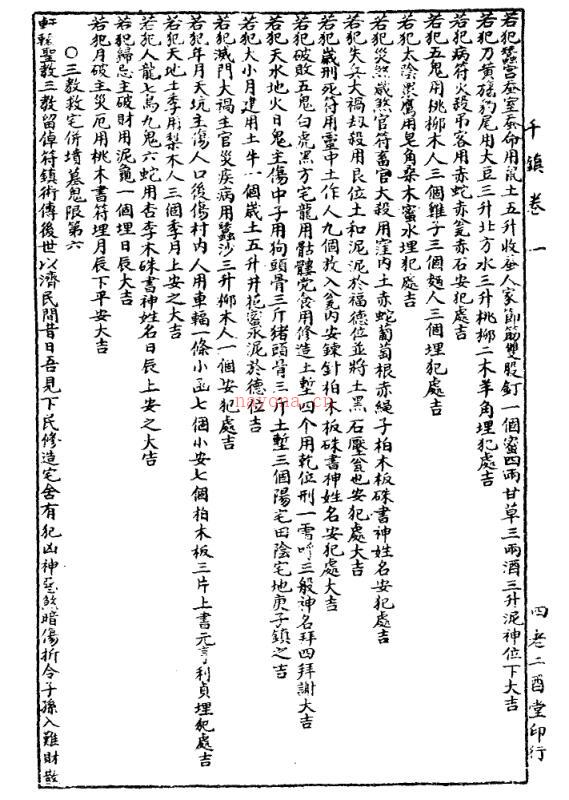 千鎮卷一
若犯蠶宮蠶室蠶命用鼠土五升收蠶人家節筋雙股釘一個蜜四兩甘草三兩酒三升泥神位下大吉
若犯刀黃旛豹尾用大豆三升北方水三升桃柳二木羊角埋犯處吉
若犯病符火殺吊客用赤蛇赤瓮赤石安犯處吉
若犯五鬼用桃柳木人三個雞子三個麵人三個埋犯處吉
若犯太陰黑鷹用皂角桑木蜜水埋犯處吉
若犯災煞歲煞官符畜官大殺用窪內土赤蛇葡萄根赤繩子柏木板硃書神姓名安犯處吉
若犯失兵大禍刼殺用艮位土和泥泥於福德位並將土黑石壓瓮也安犯處大吉
若犯歲刑死符用靈中土作人九個放入瓮內安鍊針柏木板硃書神姓名安犯處大吉
若犯破敗五鬼白虎黑方宅龍用骷髏党食用修造土塹四个用乾位刑一雪 三般神名拜四拜謝大吉
若犯天水地火日鬼主傷中子用狗頭骨三斤猪頭骨三斤土塹三個陽宅田陰宅地庚子鎮之吉
若犯大小月建用土牛一個歲土五升井花蜜水泥於德位吉
若犯滅門大禍主官災疾病用蠶沙三升柳木人一個安犯處吉
若犯年月天坑主傷人口後傷村內人用車輻一條小函七個小安七個柏木板三片上書元亨利貞埋犯處吉
若犯天地土李用梨木人三個季月上安之大吉
若犯人龍七鳥九鬼六蛇用杏李木硃書神姓名日辰上安之大吉
若犯歸忌主破財用泥龜一個埋日辰大吉
若犯月破主災厄用桃木書符埋月辰下平安大吉
○三教救宅併墳墓鬼限第六
軒轅聖教三教留倬符鎮術傳後世以濟民間昔日吾見下民修造宅舍有犯凶神惡煞暗傷折令子孫入難財散
四卷二酉堂印行
nayona.cn